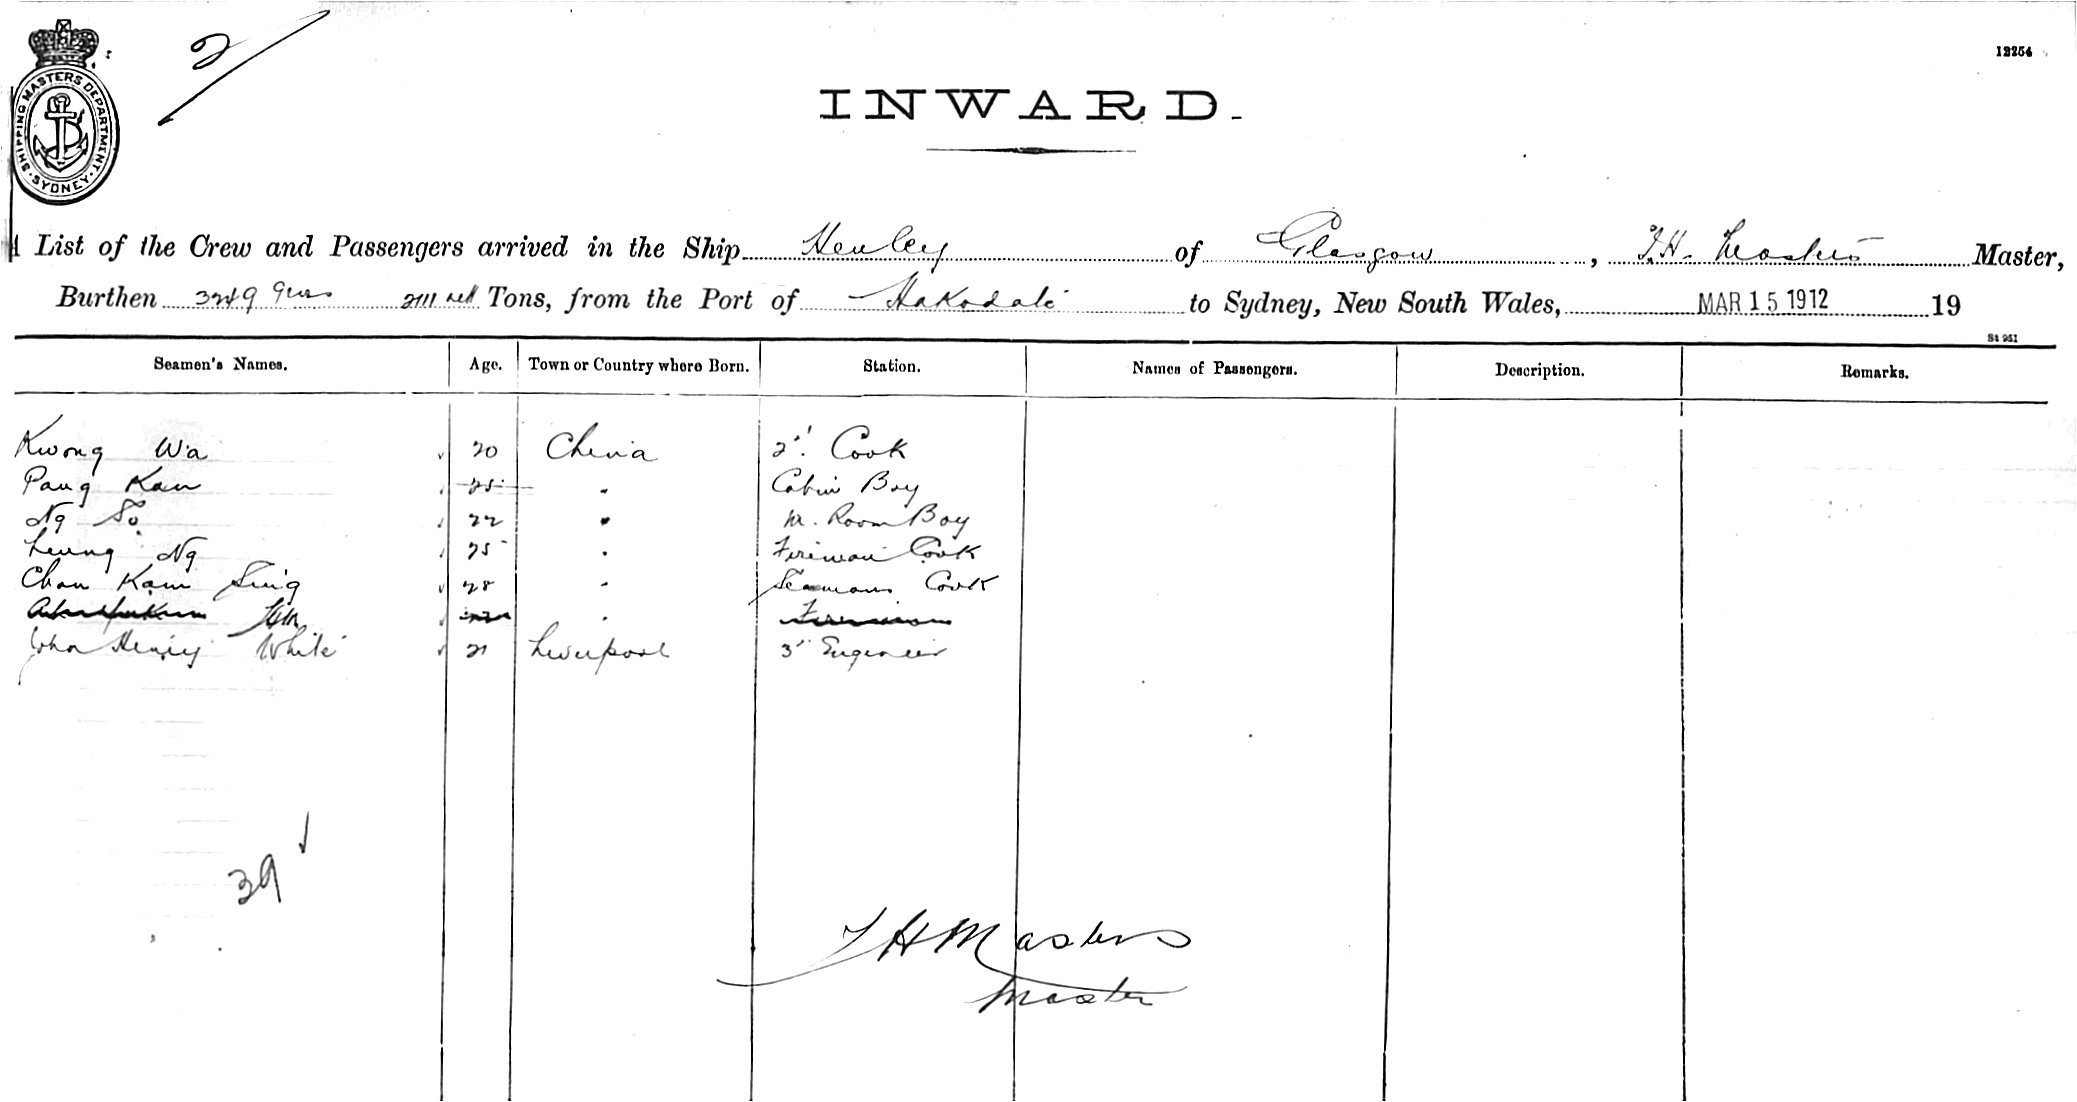 2
SHIPPING MASTERS DEPARTMENT · SYDNEY ·
12254
INWARD.
A List of the Crew and Passengers arrived in the Ship Henley of Glasgow, T.H. Masters Master,
Burthen 3249 Gros 2111 nett Tons, from the Port of Hakodate to Sydney, New South Wales, MAR 15 1912 19
St 951
Seamen's Names. Age. Town or Country where Born. Station. Names of Passengers. Description. Remarks.
Kwong Wa 20 China 2nd Cook
Pang Kan 25 " Cabin Boy
Ng So 22 " M. Room Boy
Leung Ng 25 " Fireman Cook
Chan Kam Sing 28 " Seamans Cook
" Fireman
John Henry White 21 Liverpool 3rd Engineer
39
T H Masters
Master